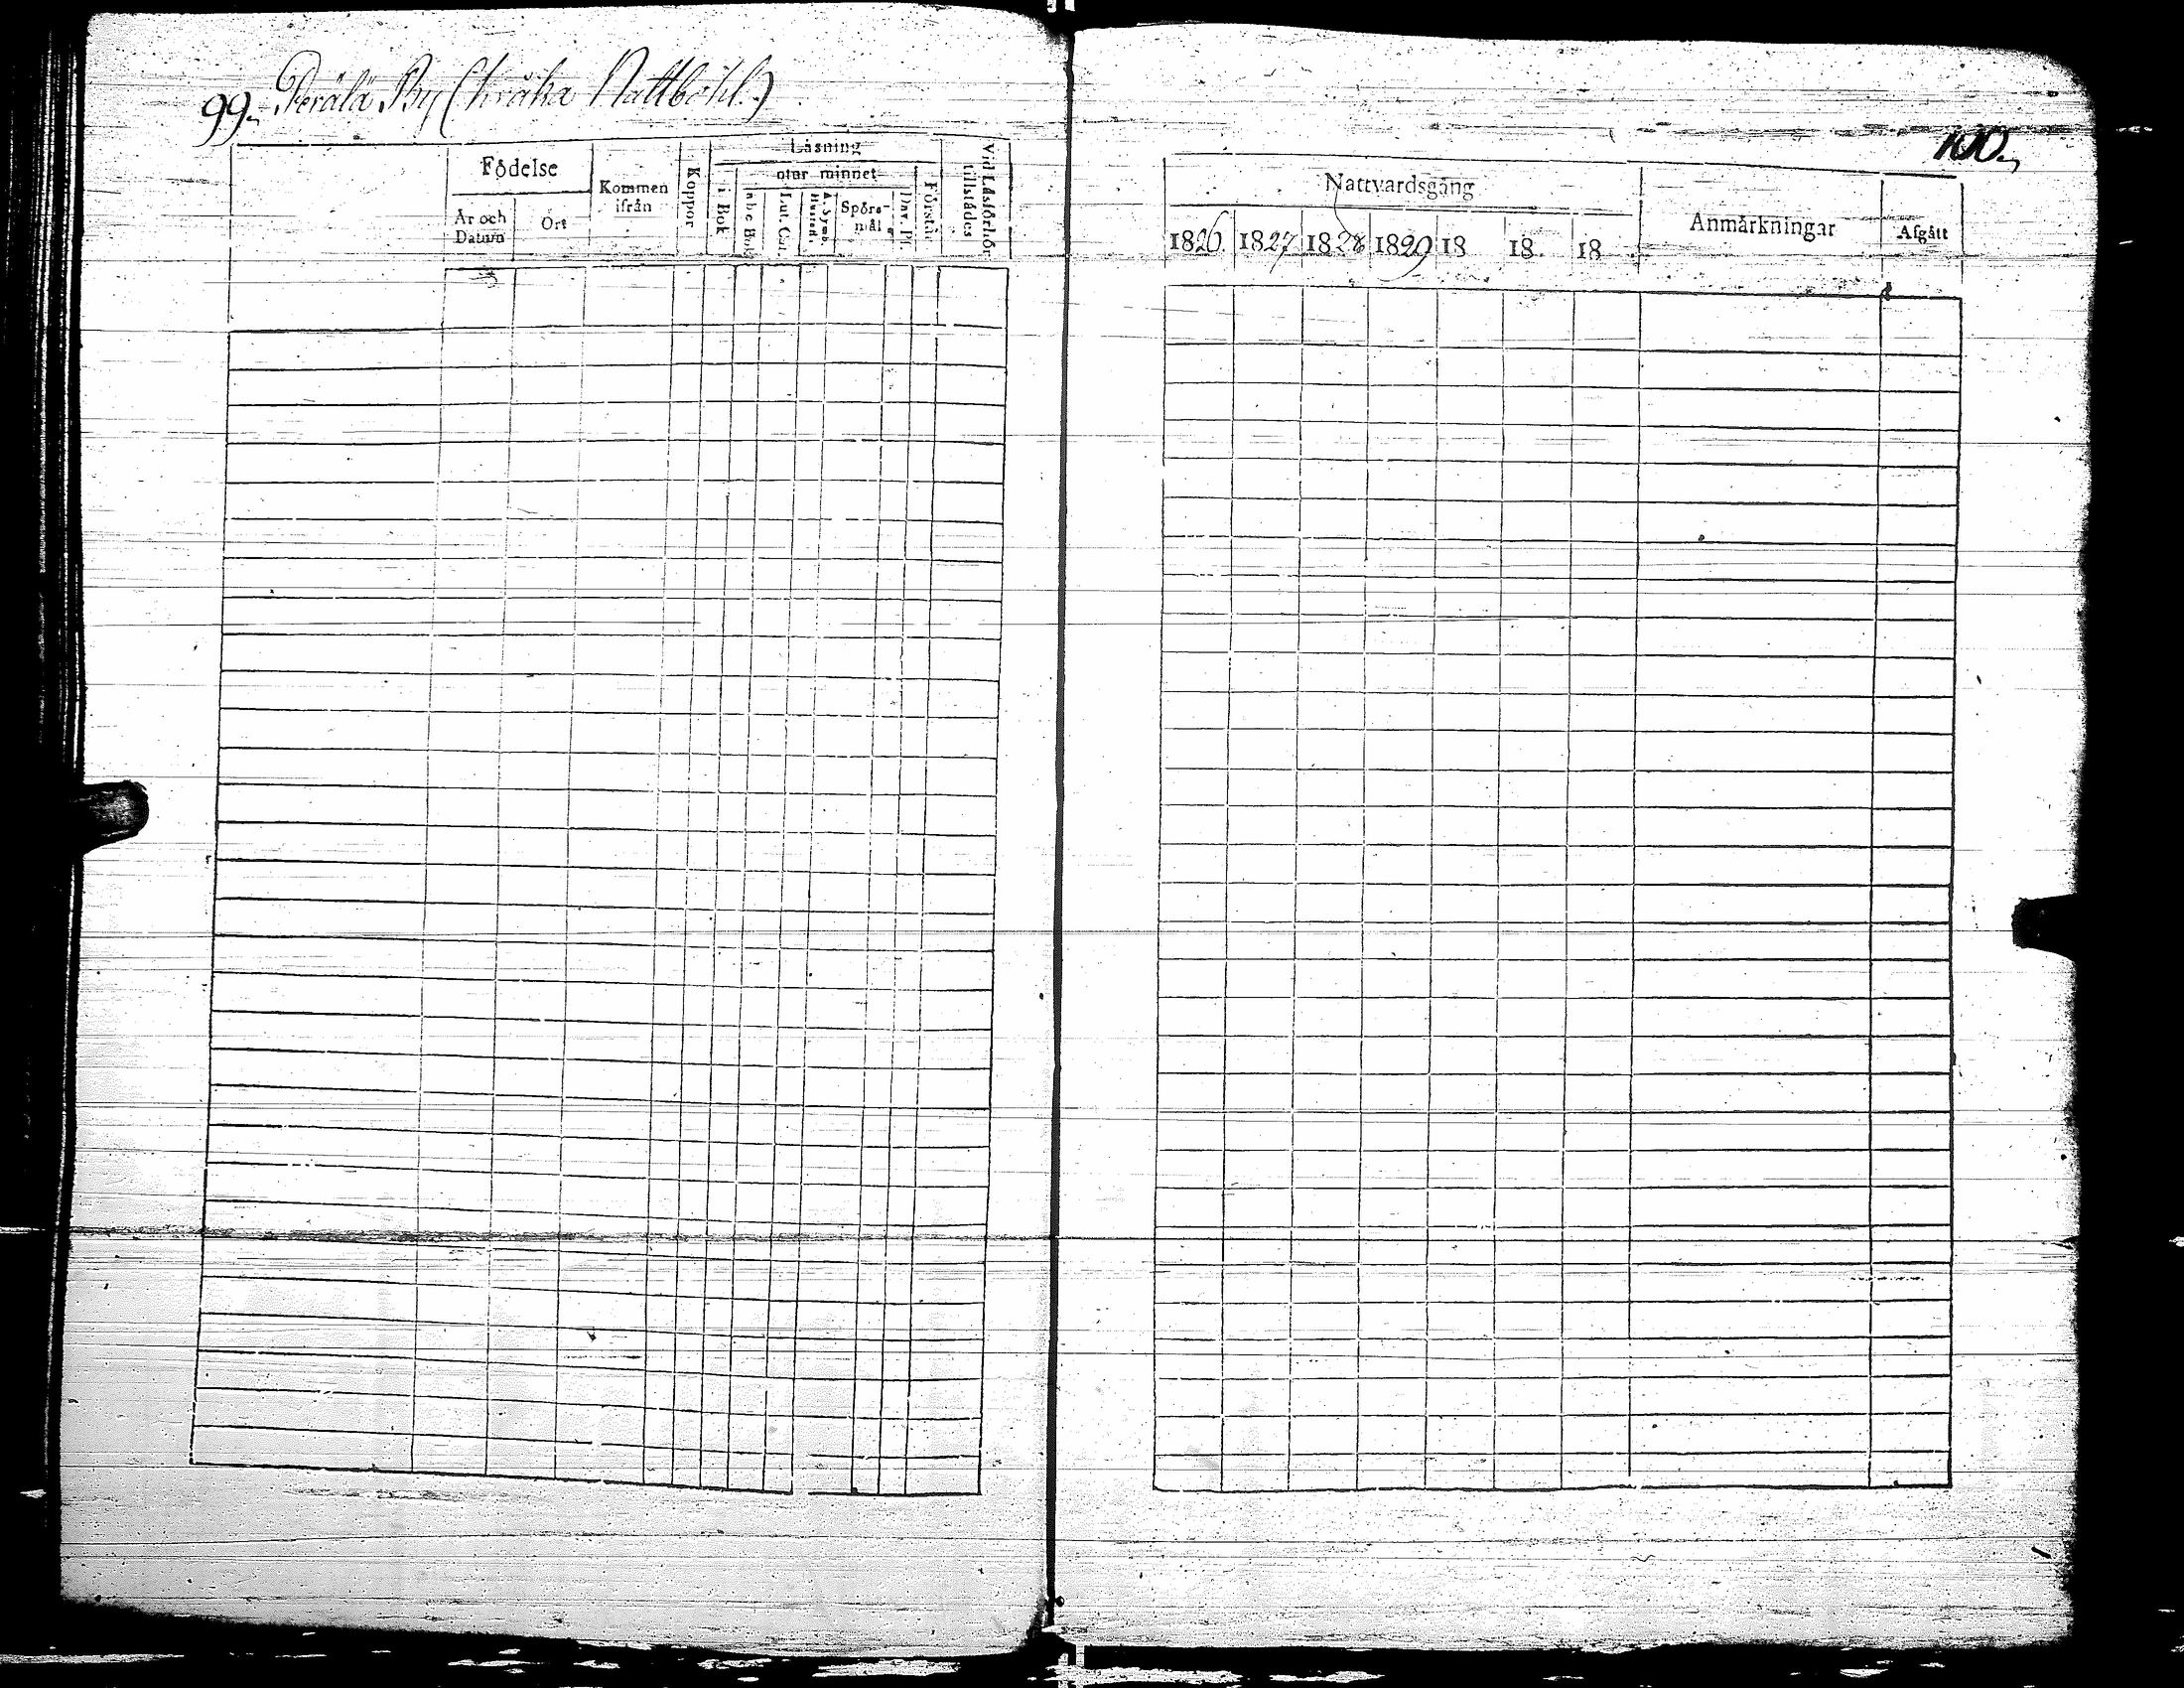 99. Perälä By (kråka Nattböhl.)
Läsning
Födelse
utur minnet
Kommen
ifrån
Koppor
i Bok
Lut. Cat.
A. Symb.
Hustafl.
Spörs-
mål
Dav. Ps.
Förstår
Vid Läsförhör
tillstädes
År och
Datum
Ort
100.
Nattvardsgång
Anmärkningar
Afgått
1826 1827 1828 1829 18 18 18